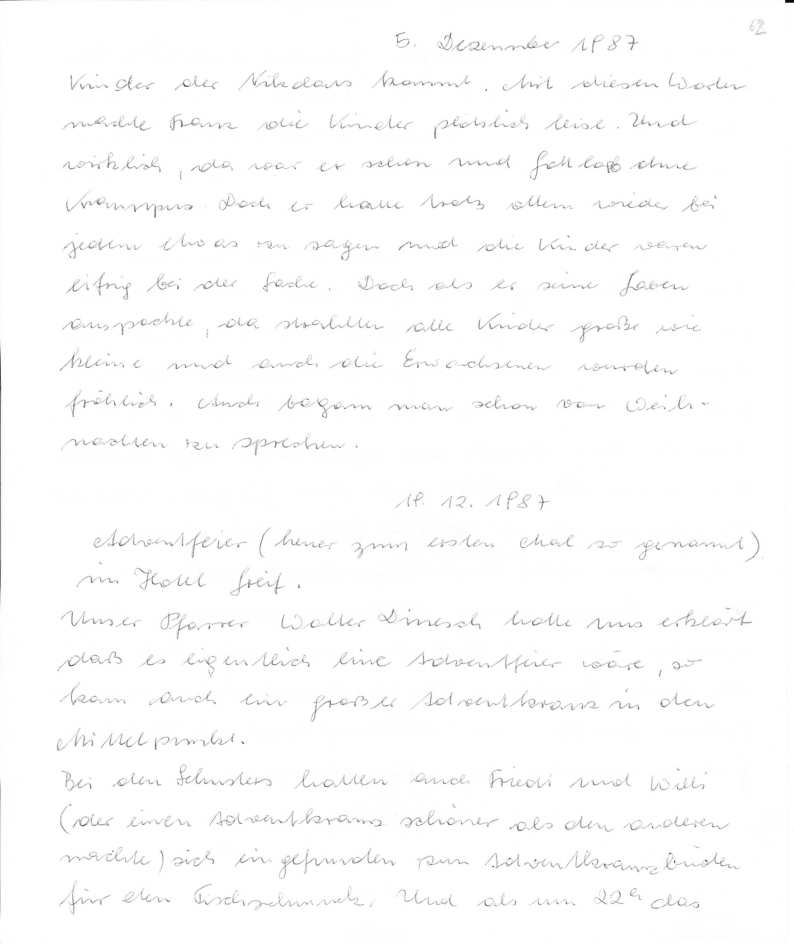 62
5. Dezember 1987
Kinder der Nikolaus kommt. Mit diesen Worten
machte Franz die Kinder plötzlich leise. Und
wirklich, da war er schon und Gott lob ohne
Krampus. Doch er hatte trotz allem wieder bei
jedem etwas zu sagen und die Kinder waren
eifrig bei der Sache. Doch als er seine Gaben
auspackte, da strahlten alle Kinder große wie
kleine und auch die Erwachsenen wurden
fröhlich. Auch begann man schon von Weih-
nachten zu sprechen.
19. 12. 1987
Adventfeier (heuer zum ersten Mal so genannt)
im Hotel Greif.
Unser Pfarrer Walter Dinesch hatte uns erklärt
daß es eigentlich eine Adventfeier wäre, so
kam auch ein großer Adventkranz in den
Mittelpunkt.
Bei den Schusters hatten auch Friedi und Willi
(der einen Adventkranz schöner als den anderen
machte) sich eingefunden zum Adventkranzbinden
für den Tischschmuck. Und als um 22h das